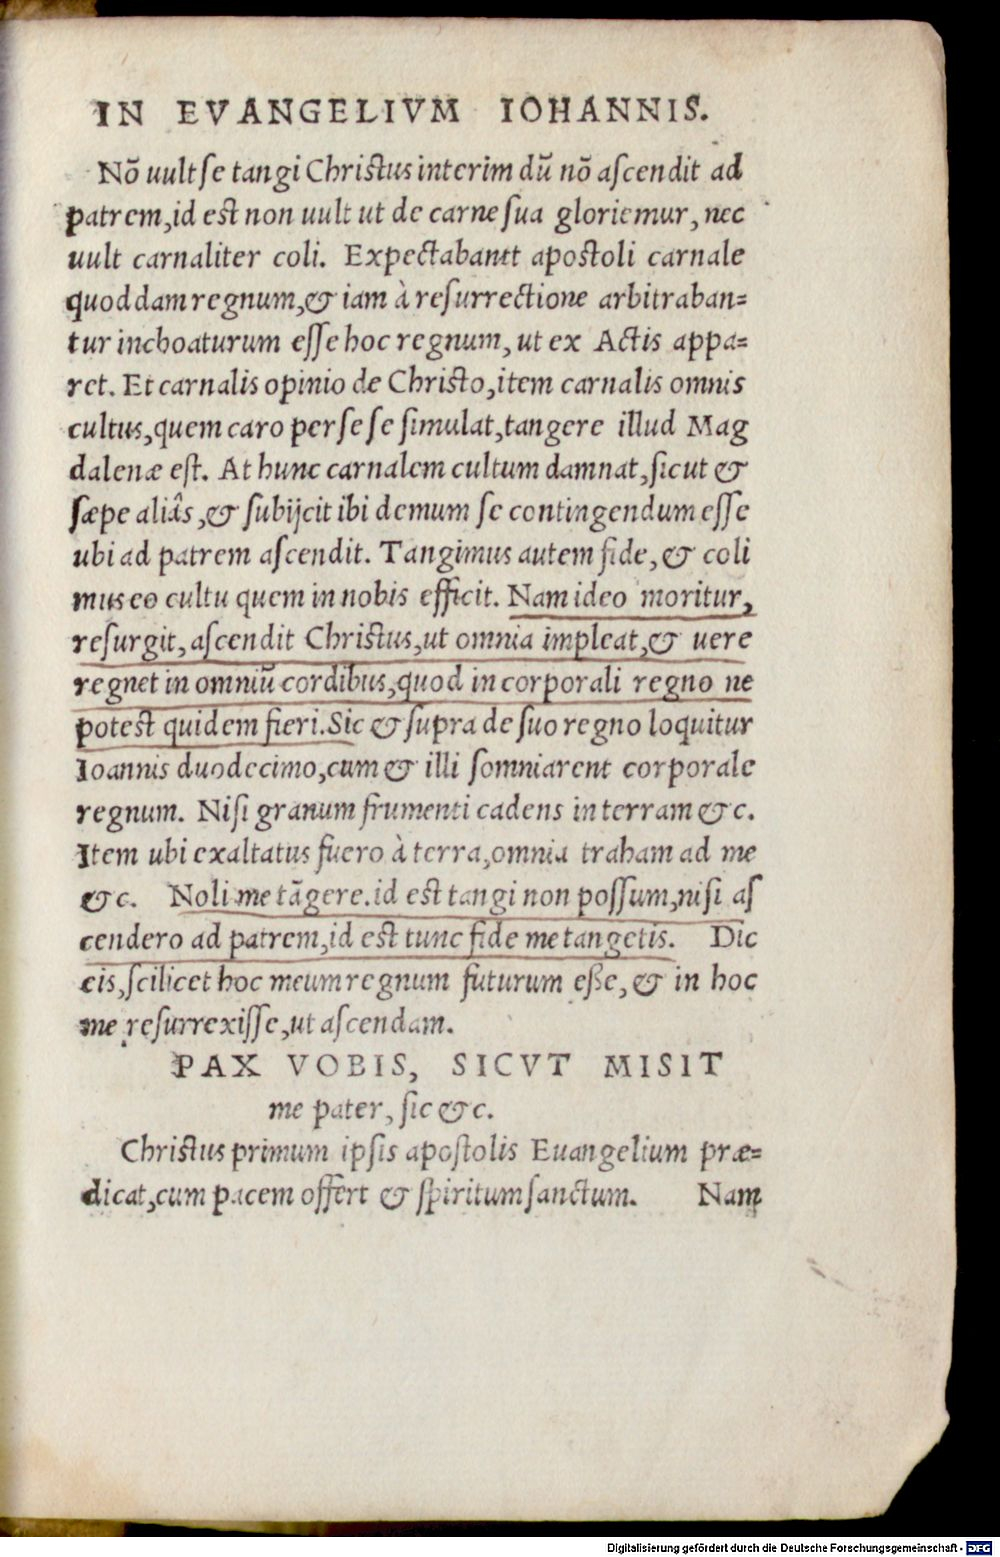 IN EVANGELIVM IOHANNIS.
Nō uult se tangi Christus interim dū nō ascendit ad
patrem, id est non uult ut de carne sua gloriemur, nec
uult carnaliter coli. Expectabantt apostoli carnale
quoddam regnum, & iam à resurrectione arbitraban=
tur inchoaturum esse hoc regnum, ut ex Actis appa=
ret. Et carnalis opinio de Christo, item carnalis omnis
cultus, quem caro per se se simulat, tangere illud Mag
dalenæ est. At hunc carnalem cultum damnat, sicut &
sæpe aliâs, & subijcit ibi demum se contingendum esse
ubi ad patrem ascendit. Tangimus autem fide, & coli
mus eo cultu quem in nobis efficit. Nam ideo moritur,
resurgit, ascendit Christus, ut omnia impleat, & uere
regnet in omniū cordibus, quod in corporali regno ne
potest quidem fieri. Sic & supra de suo regno loquitur
Ioannis duodecimo, cum & illi somniarent corporale
regnum. Nisi granum frumenti cadens in terram &c.
Item ubi exaltatus fuero à terra, omnia traham ad me
&c. Noli me tāgere. id est tangi non possum, nisi as
cendero ad patrem, id est tunc fide me tangetis. Dic
eis, scilicet hoc meum regnum futurum eße, & in hoc
me resurrexisse, ut ascendam.
PAX VOBIS, SICVT MISIT
me pater, sic &c.
Christus primum ipsis apostolis Euangelium præ=
dicat, cum pacem offert & spiritum sanctum. Nam
Digitalisierung gefördert durch die Deutsche Forschungsgemeinschaft - DFG